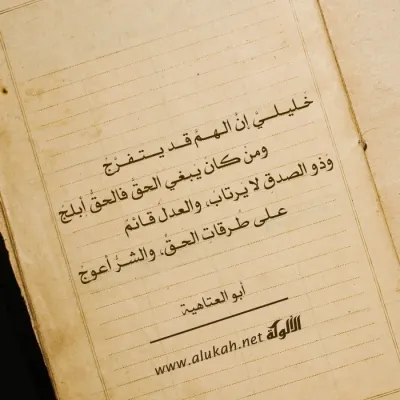 خليليَّ إنَّ الهمَّ قد يتفرَّجُ
ومنْ كانَ يبغي الحقَّ فالحقُّ أبلجُ
وذو الصدقِ لا يرتابُ، والعدلُ قائمٌ
على طُرقاتِ الحقِّ، والشرُّ أعوجُ
أبو العتاهية
الألوكة
www.alukah.net